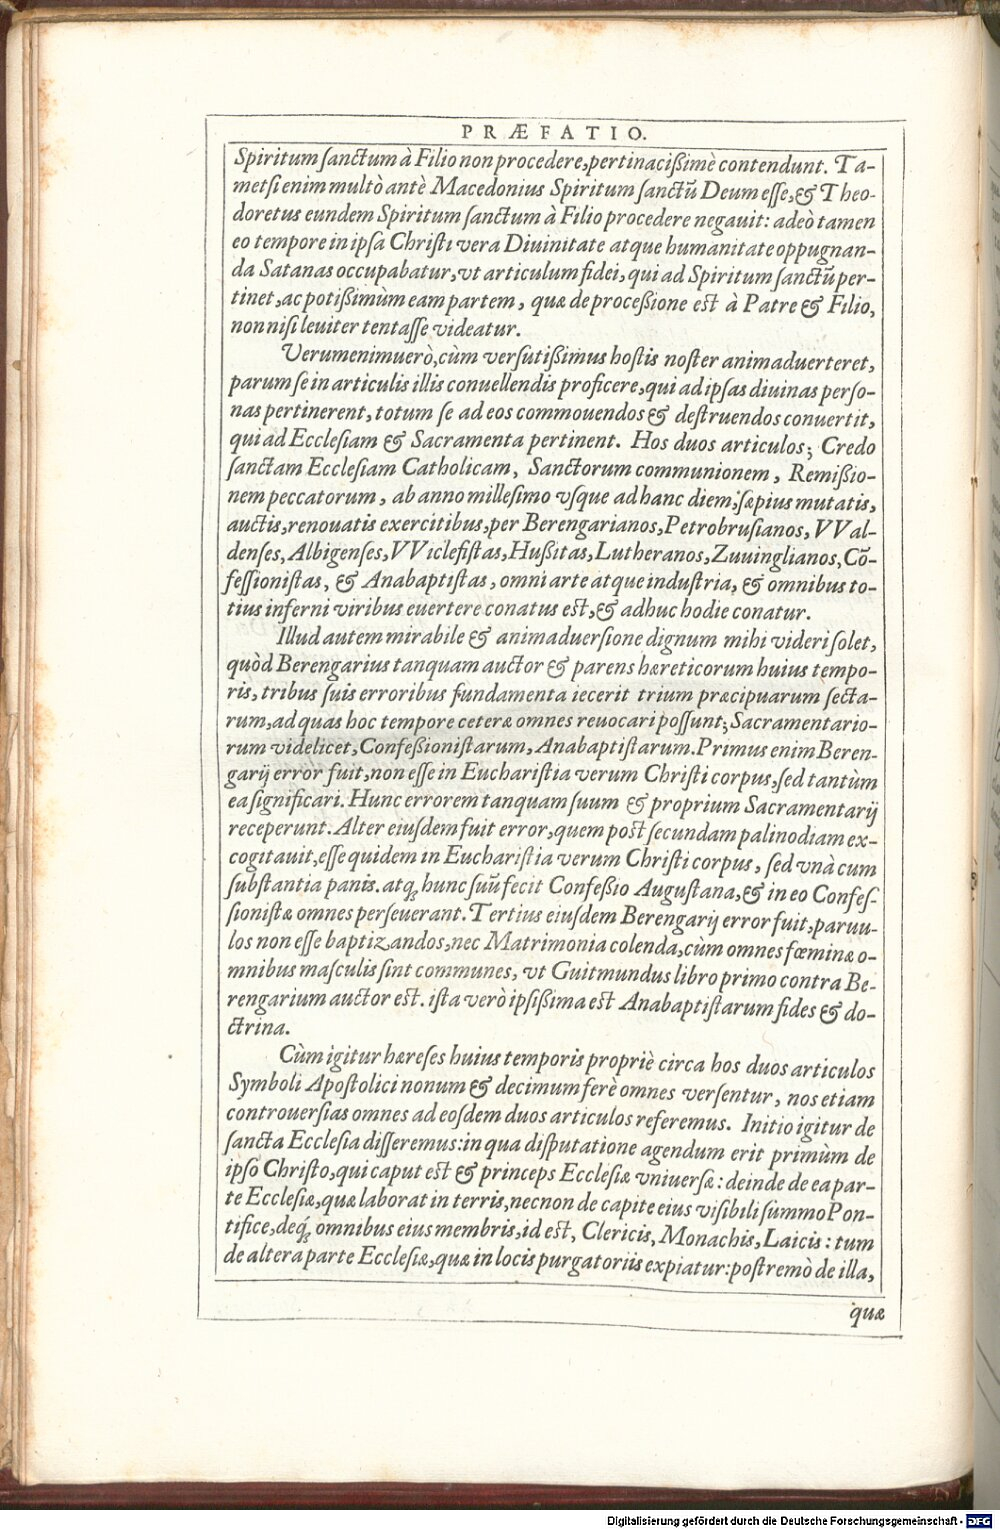 PRÆFATIO.
Spiritum ſanctum à Filio non procedere, pertinacißimè contendunt. Ta-
metſi enim multò antè Macedonius Spiritum ſanctũ Deum eſſe, & Theo-
doretus eundem Spiritum ſanctum à Filio procedere negauit: adeò tamen
eo tempore in ipſa Chriſti vera Diuinitate atque humanitate oppugnan-
da Satanas occupabatur, vt articulum fidei, qui ad Spiritum ſanctũ per-
tinet, ac potißimùm eam partem, quæ de proceßione eſt à Patre & Filio,
non niſi leuiter tentaſſe videatur.
Verumenimuerò, cùm verſutißimus hoſtis noſter animaduerteret,
parum ſe in articulis illis conuellendis proficere, qui ad ipſas diuinas perſo-
nas pertinerent, totum ſe ad eos commouendos & deſtruendos conuertit,
qui ad Eccleſiam & Sacramenta pertinent. Hos duos articulos; Credo
ſanctam Eccleſiam Catholicam, Sanctorum communionem, Remißio-
nem peccatorum, ab anno milleſimo vſque ad hanc diem, ſæpius mutatis,
auctis, renouatis exercitibus, per Berengarianos, Petrobruſianos, VVal-
denſes, Albigenſes, VViclefiſtas, Hußitas, Lutheranos, Zuuinglianos, Cõ-
feſſioniſtas, & Anabaptiſtas, omni arte atque induſtria, & omnibus to-
tius inferni viribus euertere conatus eſt, & adhuc hodie conatur.
Illud autem mirabile & animaduerſione dignum mihi videri ſolet,
quòd Berengarius tanquam auctor & parens hæreticorum huius tempo-
ris, tribus ſuis erroribus fundamenta iecerit trium præcipuarum ſecta-
rum, ad quas hoc tempore ceteræ omnes reuocari poſſunt; Sacramentario-
rum videlicet, Confeßioniſtarum, Anabaptiſtarum. Primus enim Beren-
garij error fuit, non eſſe in Euchariſtia verum Chriſti corpus, ſed tantùm
ea ſignificari. Hunc errorem tanquam ſuum & proprium Sacramentarij
receperunt. Alter eiuſdem fuit error, quem poſt ſecundam palinodiam ex-
cogitauit, eſſe quidem in Euchariſtia verum Chriſti corpus, ſed vnà cum
ſubſtantia panis. atq; hunc ſuũ fecit Confeßio Auguſtana, & in eo Confeſ-
ſioniſtæ omnes perſeuerant. Tertius eiuſdem Berengarij error fuit, paruu-
los non eſſe baptizandos, nec Matrimonia colenda, cùm omnes fœminæ o-
mnibus maſculis ſint communes, vt Guitmundus libro primo contra Be-
rengarium auctor eſt. iſta verò ipſißima eſt Anabaptiſtarum fides & do-
ctrina.
Cùm igitur hæreſes huius temporis propriè circa hos duos articulos
Symboli Apoſtolici nonum & decimum ferè omnes verſentur, nos etiam
controuerſias omnes ad eoſdem duos articulos referemus. Initio igitur de
ſancta Eccleſia diſſeremus: in qua diſputatione agendum erit primùm de
ipſo Chriſto, qui caput eſt & princeps Eccleſiæ vniuerſæ: deinde de ea par-
te Eccleſiæ, quæ laborat in terris, necnon de capite eius viſibili ſummo Pon-
tifice, deq; omnibus eius membris, id eſt, Clericis, Monachis, Laicis: tum
de altera parte Eccleſiæ, quæ in locis purgatoriis expiatur: poſtremò de illa,
quæ
Digitalisierung gefördert durch die Deutsche Forschungsgemeinschaft - DFG